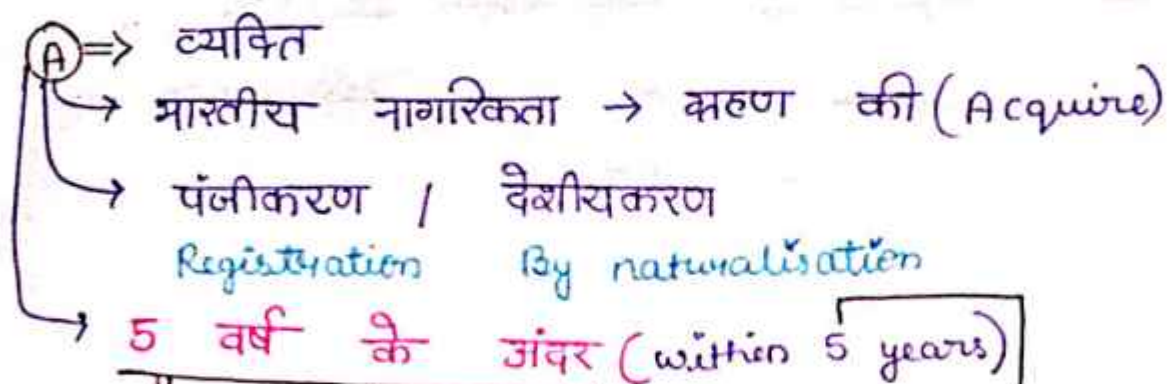 A ⇒ व्यक्ति
→ भारतीय नागरिकता → ग्रहण की (Acquire)
→ पंजीकरण / देशीयकरण
Registration By naturalisation
→ 5 वर्ष के अंदर (within 5 years)